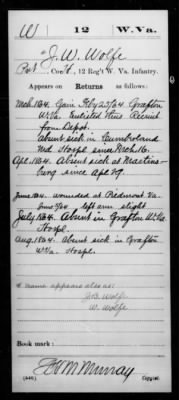 W 12 W. Va.
J. W. Wolfe
Pvt., Co. H, 12 Reg't W. Va. Infantry.
Appears on
Returns as follows:
Mch. 1864. Gain Feby 23/64 Grafton
W.Va. Enlisted this Recruit
from Depot.
Absent sick in Cumberland
Md Hospl since Mch 16.
Apl. 1864. Absent sick at Martins
burg since Apl 29.
June 1864. wounded at Piedmont Va.
June 5/64 left arm slight.
July 1864. Absent in Grafton W.Va.
Hospl.
Aug. 1864. Absent sick in Grafton
W.Va. Hospl.
* name appears also as:
J.B. Wolf
W. Wolfe
Book mark:
Murray
(546) Copyist.